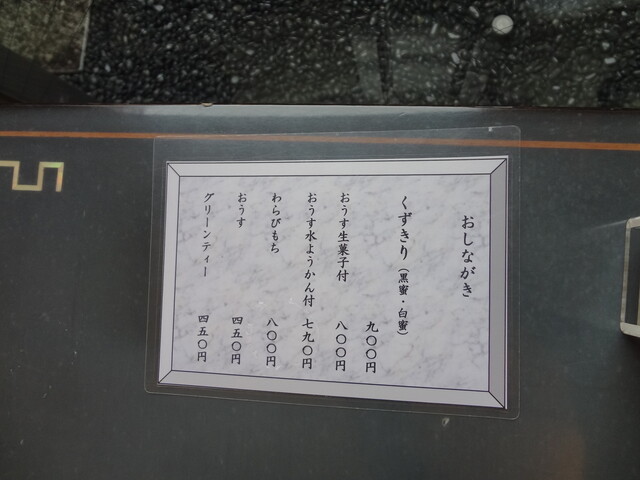 おしながき
くずきり（黒蜜・白蜜）
九〇〇円
おうす生菓子付 八〇〇円
おうす水ようかん付 七九〇円
わらびもち 八〇〇円
おうす 四五〇円
グリーンティー 四五〇円